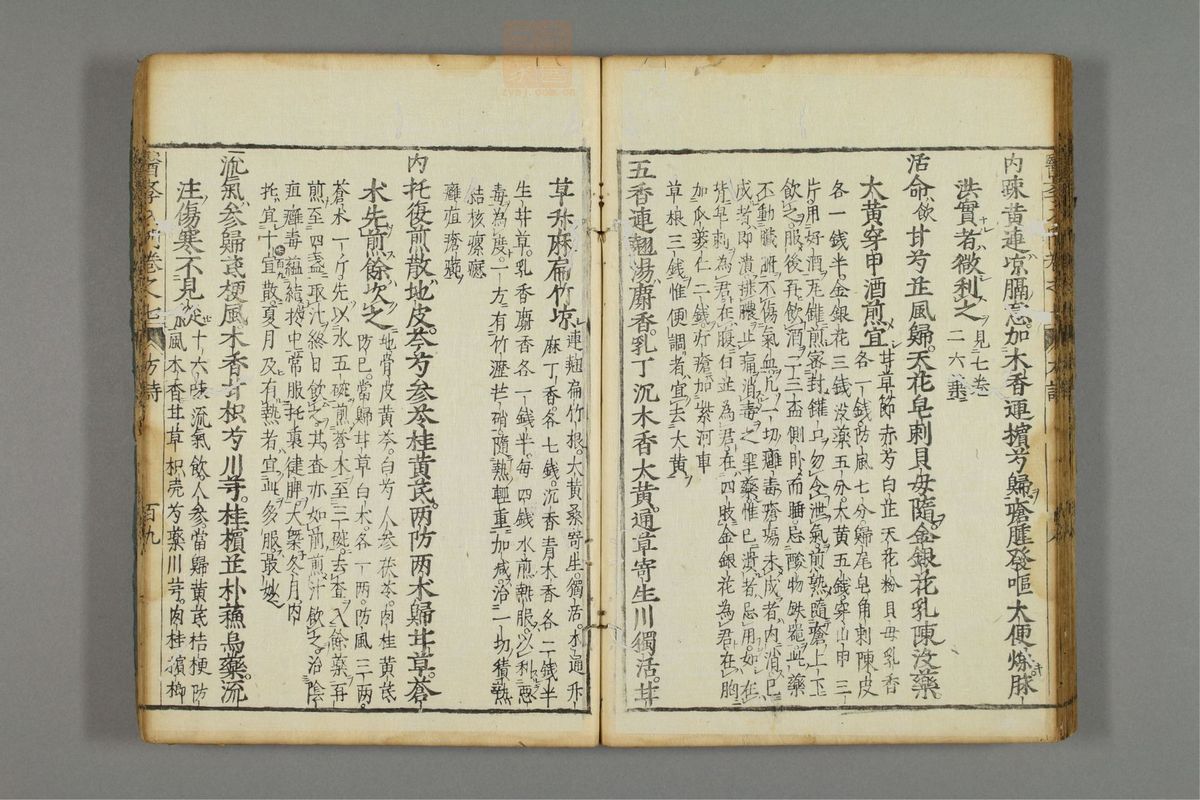 内疎黄連凉膈忌加木香連擯芍歸瘡腫發嘔大便
洪實者微利之 見七卷二六葉
活命飲甘芍芷風歸天花皂刺貝毋隨金銀花乳陳没藥
大黄穿甲酒煎宜 甘草節赤芍白芷天花粉貝毋乳香
各一錢防風七分歸尾皂角刺陳皮
各一錢半金銀花三錢没藥五分大黄五錢穿山甲三
片用好酒煎密封鑵口勿令泄氣煎熟隨瘡上下
飲之服後再飲酒二三盃側卧而睡忌酸物鉄器此藥
不動臟腑不傷氣血凡一切癰毒瘡瘍未成者内消已
成者即潰排膿止痛消毒之聖藥惟已潰者忌用如在
背皂刺為君在腹白芷為君在四肢金銀花為君在胸
加瓜蔞仁二錢疔瘡加紫河車
草根三錢惟便調者宜去大黄
五香連翹湯麝香乳丁沉木香大黄通草寄生川獨活甘
草升麻扁竹凉 連翹扁竹根大黄桑寄生獨活木通升
麻丁香各七錢沉香青木香各二錢半
生甘草乳香麝香各一錢半每四錢水煎熱服以利惡
毒為度一方有竹瀝芒硝隨熱輕重加减治一切積熱
結核瘰癧
癰疽瘡癤
内托復煎散地皮芩芍参苓桂黄茋两防两木歸甘草蒼
术先煎餘次之 地骨皮黄芩白芍人參茯苓肉桂黄茋
防已當歸甘草白术各一两防風三两
蒼木一斤先以水五碗煎蒼木至三碗去査入餘藥再
煎至四盞取汁終日飲之其査亦如前煎汁飲之治陰
疽癰毒蘊結於中常服托裏健脾大槩冬月内
托宜十宣散夏月及有熱者宜此多服最妙
流氣参歸茋梗風木香甘枳芍川芎桂檳芷朴蘓烏藥流
注傷寒不見從 十六味流氣飲人參當歸黄茋桔梗防
風木香甘草枳壳芍藥川芎肉桂檳榔
醫
卷之七
方詩
百九